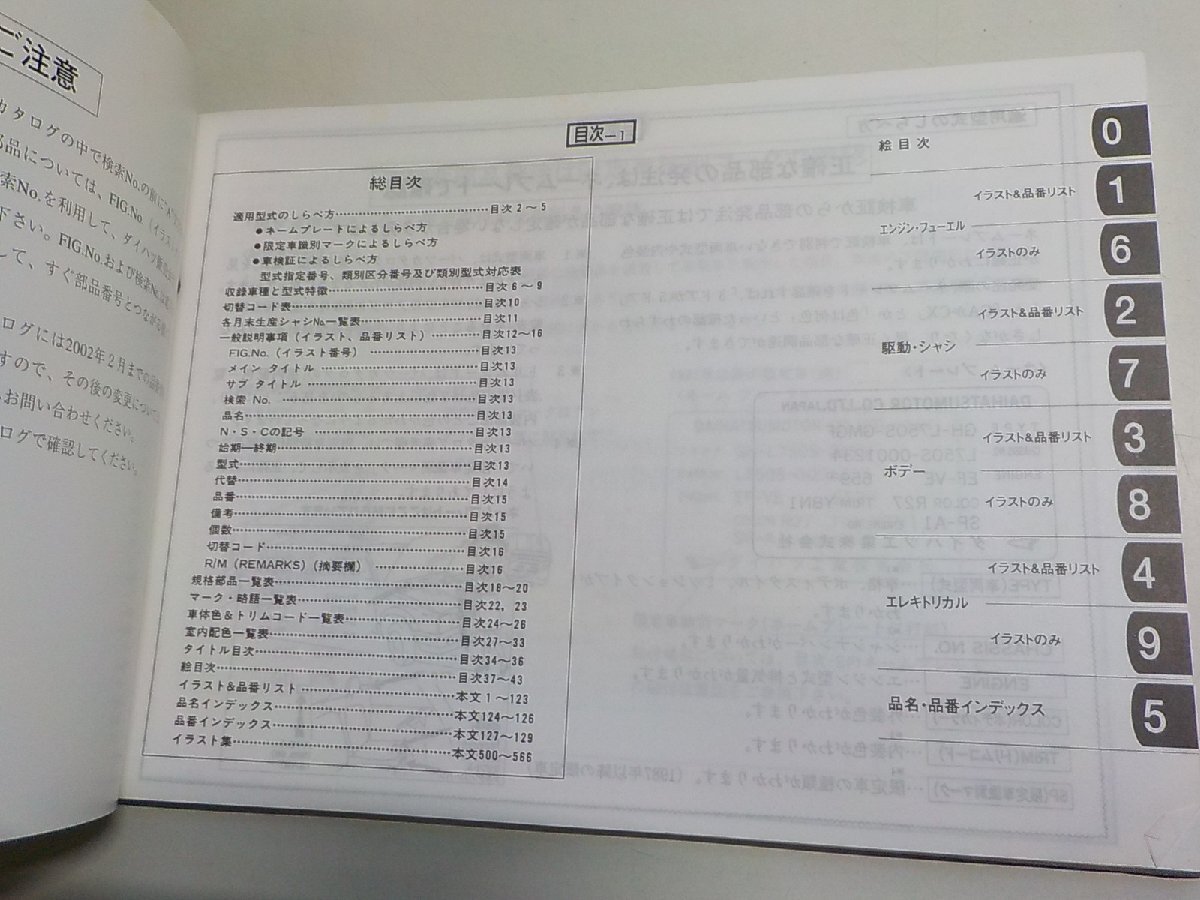 ご注意
カタログの中で検索No.の前に
部品については、FIG.No.（イラスト
索No.を利用して、ダイハツ販売会
下さい。FIG.No.および検索No.
して、すぐ部品番号とつながる
ログには2002年2月までの
すので、その後の変更については
お問い合わせください。
ログで確認してください。
目次—1
総目次
適用型式のしらべ方……目次2～5
●ネームプレートによるしらべ方
●限定車識別マークによるしらべ方
●車検証によるしらべ方
型式指定番号、類別区分番号及び類別型式対応表
収録車種と型式特徴……目次6～9
切替コード表……目次10
各月末生産シャシ№一覧表……目次11
一般説明事項（イラスト、品番リスト）……目次12～16
FIG.No.（イラスト番号）……目次13
メイン タイトル……目次13
サブ タイトル……目次13
検索 No.……目次13
品名……目次13
N・S・Cの記号……目次13
始期—終期……目次13
型式……目次13
代替……目次14
品番……目次15
備考……目次15
個数……目次15
切替コード……目次16
R/M（REMARKS）（摘要欄）……目次16
規格部品一覧表……目次18～20
マーク・略語一覧表……目次22, 23
車体色＆トリムコード一覧表……目次24～26
室内配色一覧表……目次27～33
タイトル目次……目次34～36
絵目次……目次37～43
イラスト＆品番リスト……本文1～123
品名インデックス……本文124～126
品番インデックス……本文127～129
イラスト集……本文500～566
絵目次
0
イラスト&品番リスト
1
エンジン・フューエル
イラストのみ
6
イラスト&品番リスト
2
駆動・シャシ
イラストのみ
7
イラスト&品番リスト
3
ボデー
イラストのみ
8
イラスト&品番リスト
4
エレキトリカル
イラストのみ
9
品名・品番インデックス
5